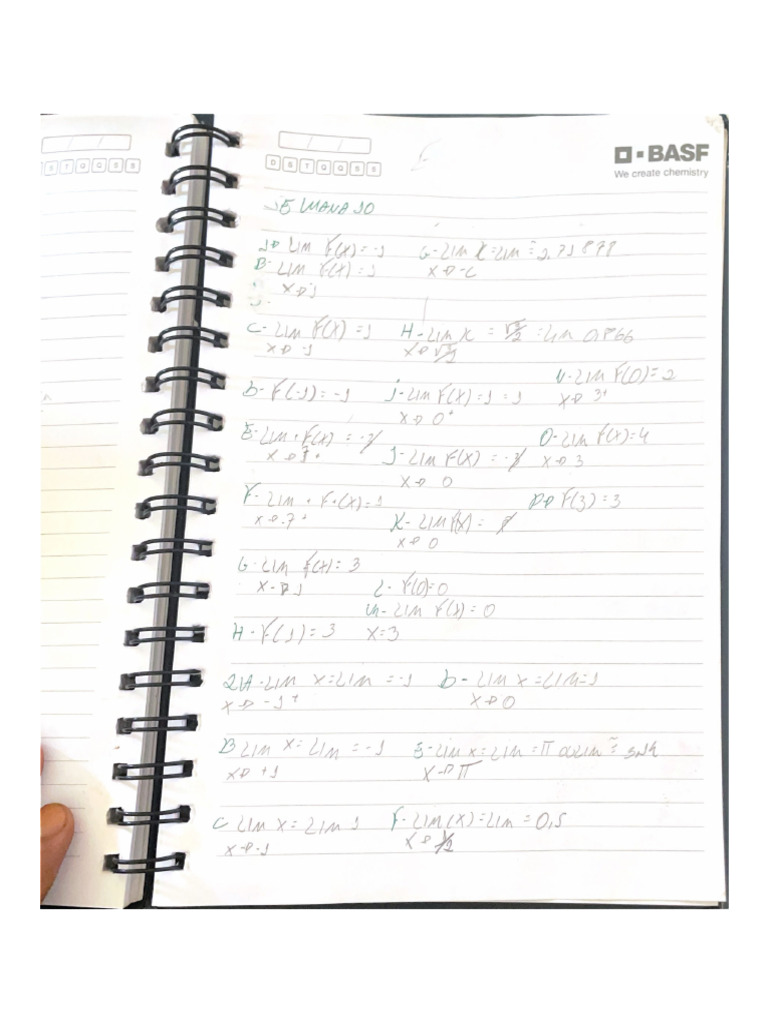 D S T Q Q S S
BASF
We create chemistry
SEMANA 10
LIM F(X) = -1
G- LIM X = LIM = 2,71878
B- LIM F(X) = 1
X→1
X→-C
C- LIM F(X) = 1
X→-1
H- LIM X = √3/2 = LIM 0,866
X→√3/2
N- LIM F(0) = 2
X→3+
D- F(-1) = -1
J- LIM F(X) = 1 = 1
X→0+
E- LIM + F(X)
O- LIM F(X) = 4
X→3
J- LIM F(X)
X→0
F- LIM + F+(X) = 1
P→ F(3) = 3
K- LIM F(X) =
X→0
G- LIM F(X) = 3
X→1
L- F(0) = 0
M- LIM F(X) = 0
X=3
H- F(1) = 3
2)A- LIM X = LIM = -1
X→-1+
D- LIM X = LIM = 1
X→0
B LIM X = LIM = -1
X→+1
E- LIM X = LIM = π
X→π
C LIM X = LIM 1
X→-1
F- LIM (X) = LIM = 0,5
X→1/2